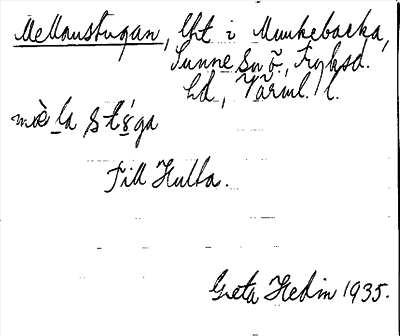 Mellanstugan, lht i Munkebacka,
Sunne sn ö., Fryksd.
hd, Värml. l.
mèla stó́ga
Till Hulta.
Greta Hedin 1935.